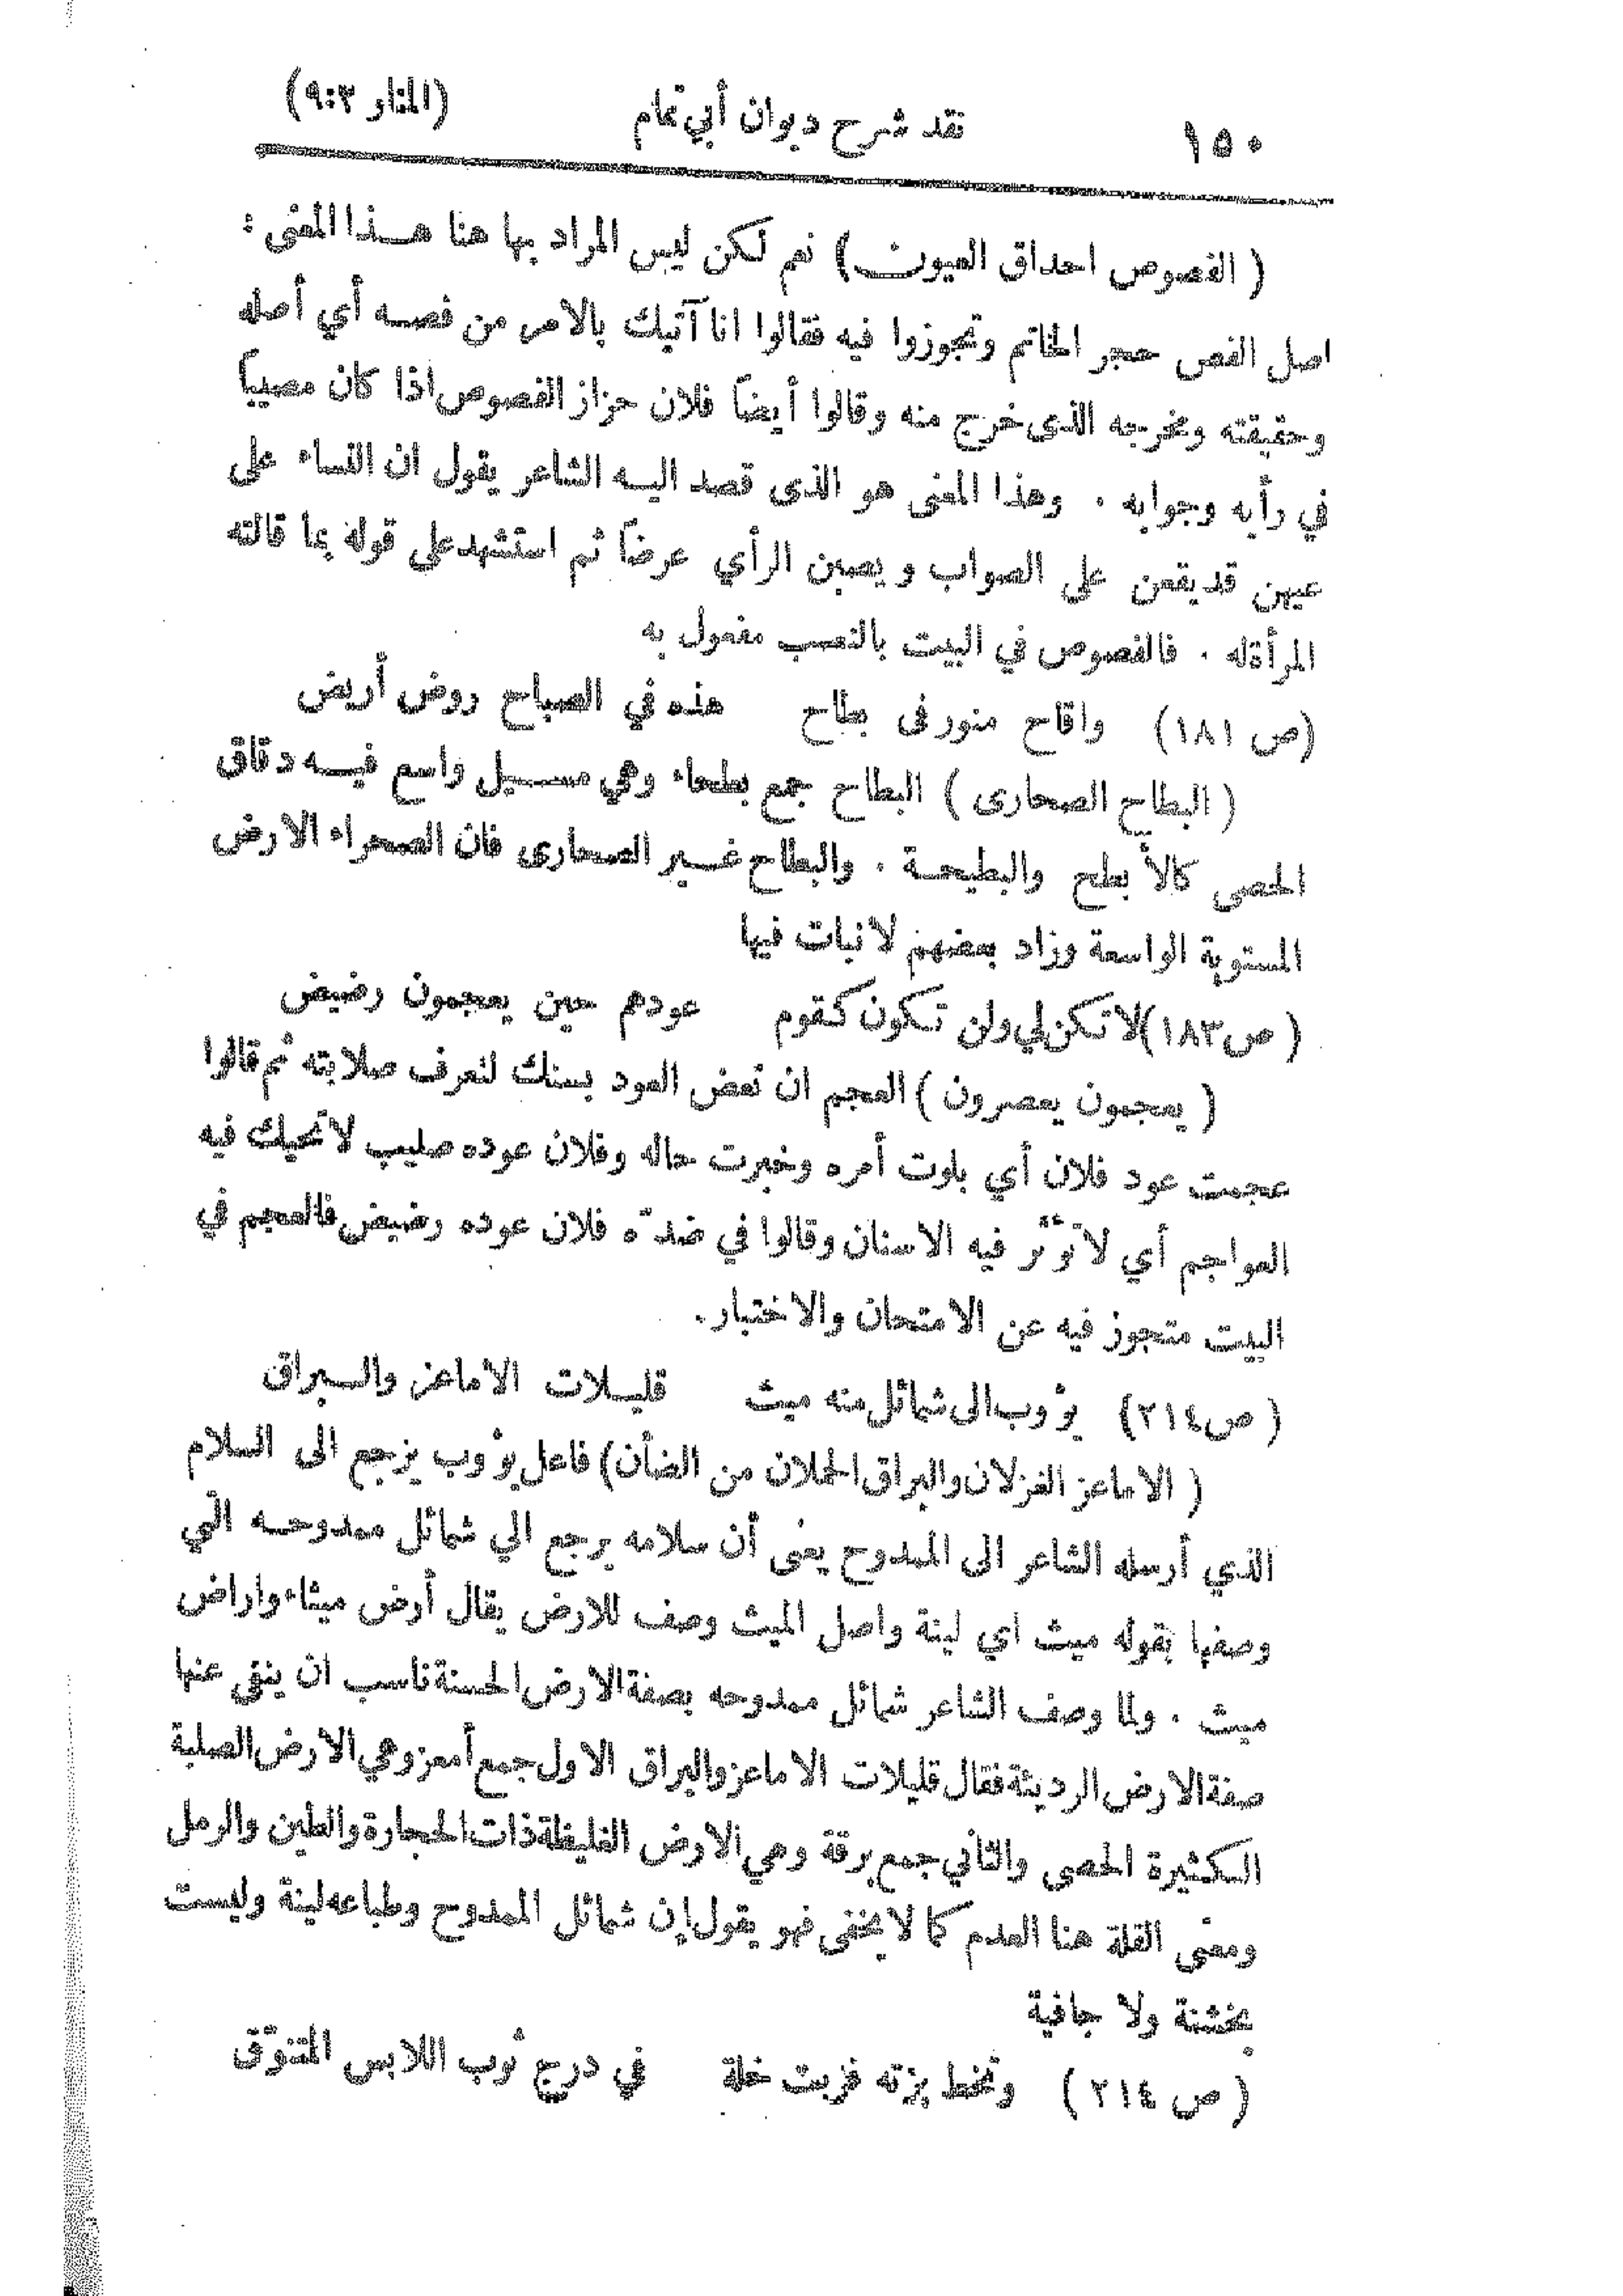 ١٥٠ نقد شرح ديوان أبي تمام (المنار ٣:٩)
( الفصوص احداق العيون ) نعم لكن ليس المراد بها هنا هـذا المعنى :
اصل الفص حجر الخاتم وتجوزوا فيه فقالوا انا آتيك بالامر من فصه أي أصله
وحقيقته ومخرجه الذى خرج منه وقالوا أيضاً فلان حزاز الفصوص اذا كان مصيباً
في رأيه وجوابه . وهذا المعنى هو الذى قصد اليه الشاعر يقول ان النساء على
عيهن قد يقعن على الصواب ويصبن الرأي عرضاً ثم استشهد على قوله بما قالته
المرأة له . فالفصوص في البيت بالنصب مفعول به
(ص ١٨١) واقاح منور فى بطاح هذه في الصباح روض أريض
( البطاح الصحارى ) البطاح جمع بطحاء وهي مسـيل واسع فيـه دقاق
الحصى كالأ بطح والبطيحة . والبطاح غـير الصحارى فان الصحراء الارض
المستوية الواسعة وزاد بعضهم لا نبات فيها
( ص ١٨٣) لا تكن لي ولن تكون كقوم عودهم حين يعجمون رضيض
( يعجمون يعصرون ) العجم ان تعض العود بسنك لتعرف صلابته ثم قالوا
عجمت عود فلان أي بلوت أمره وخبرت حاله وفلان عوده صليب لا تحيك فيه
العواجم أي لا تؤثر فيه الاسنان وقالوا في ضدّه فلان عوده رضيض فالعجم في
البيت متجوز فيه عن الامتحان والاختبار.
( ص ٢١٤) يؤوب الى شمائل منه ميث قليـلات الاماعز والـبراق
( الاماعز الغزلان والبراق الحملان من الضأن) فاعل يؤوب يرجع الى السلام
الذي أرسله الشاعر الى الممدوح يعنى أن سلامه يرجع الي شمائل ممدوحـه التي
وصفها بقوله ميث اي لينة واصل الميث وصف للارض يقال أرض ميثاء واراض
ميث . ولما وصف الشاعر شمائل ممدوحه بصفة الارض الحسنة ناسب ان ينفي عنها
صفة الارض الرديئة فقال قليلات الاماعز والبراق الاول جمع أمعز وهي الارض الصلبة
الكثيرة الحصى والثاني جمع برقة وهي الارض الغليظة ذات الحجارة والطين والرمل
ومعنى القلة هنا العدم كما لا يخفى فهو يقول إن شمائل الممدوح وطباعه لينة وليست
بخشنة ولا جافية
( ص ٢١٤ ) وتخط بزته فربت خلة في درج ثوب اللابس المتنوّق